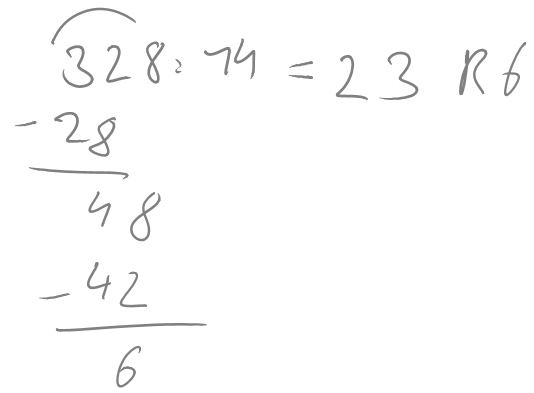 328:14 = 23 R6
-28
48
-42
6